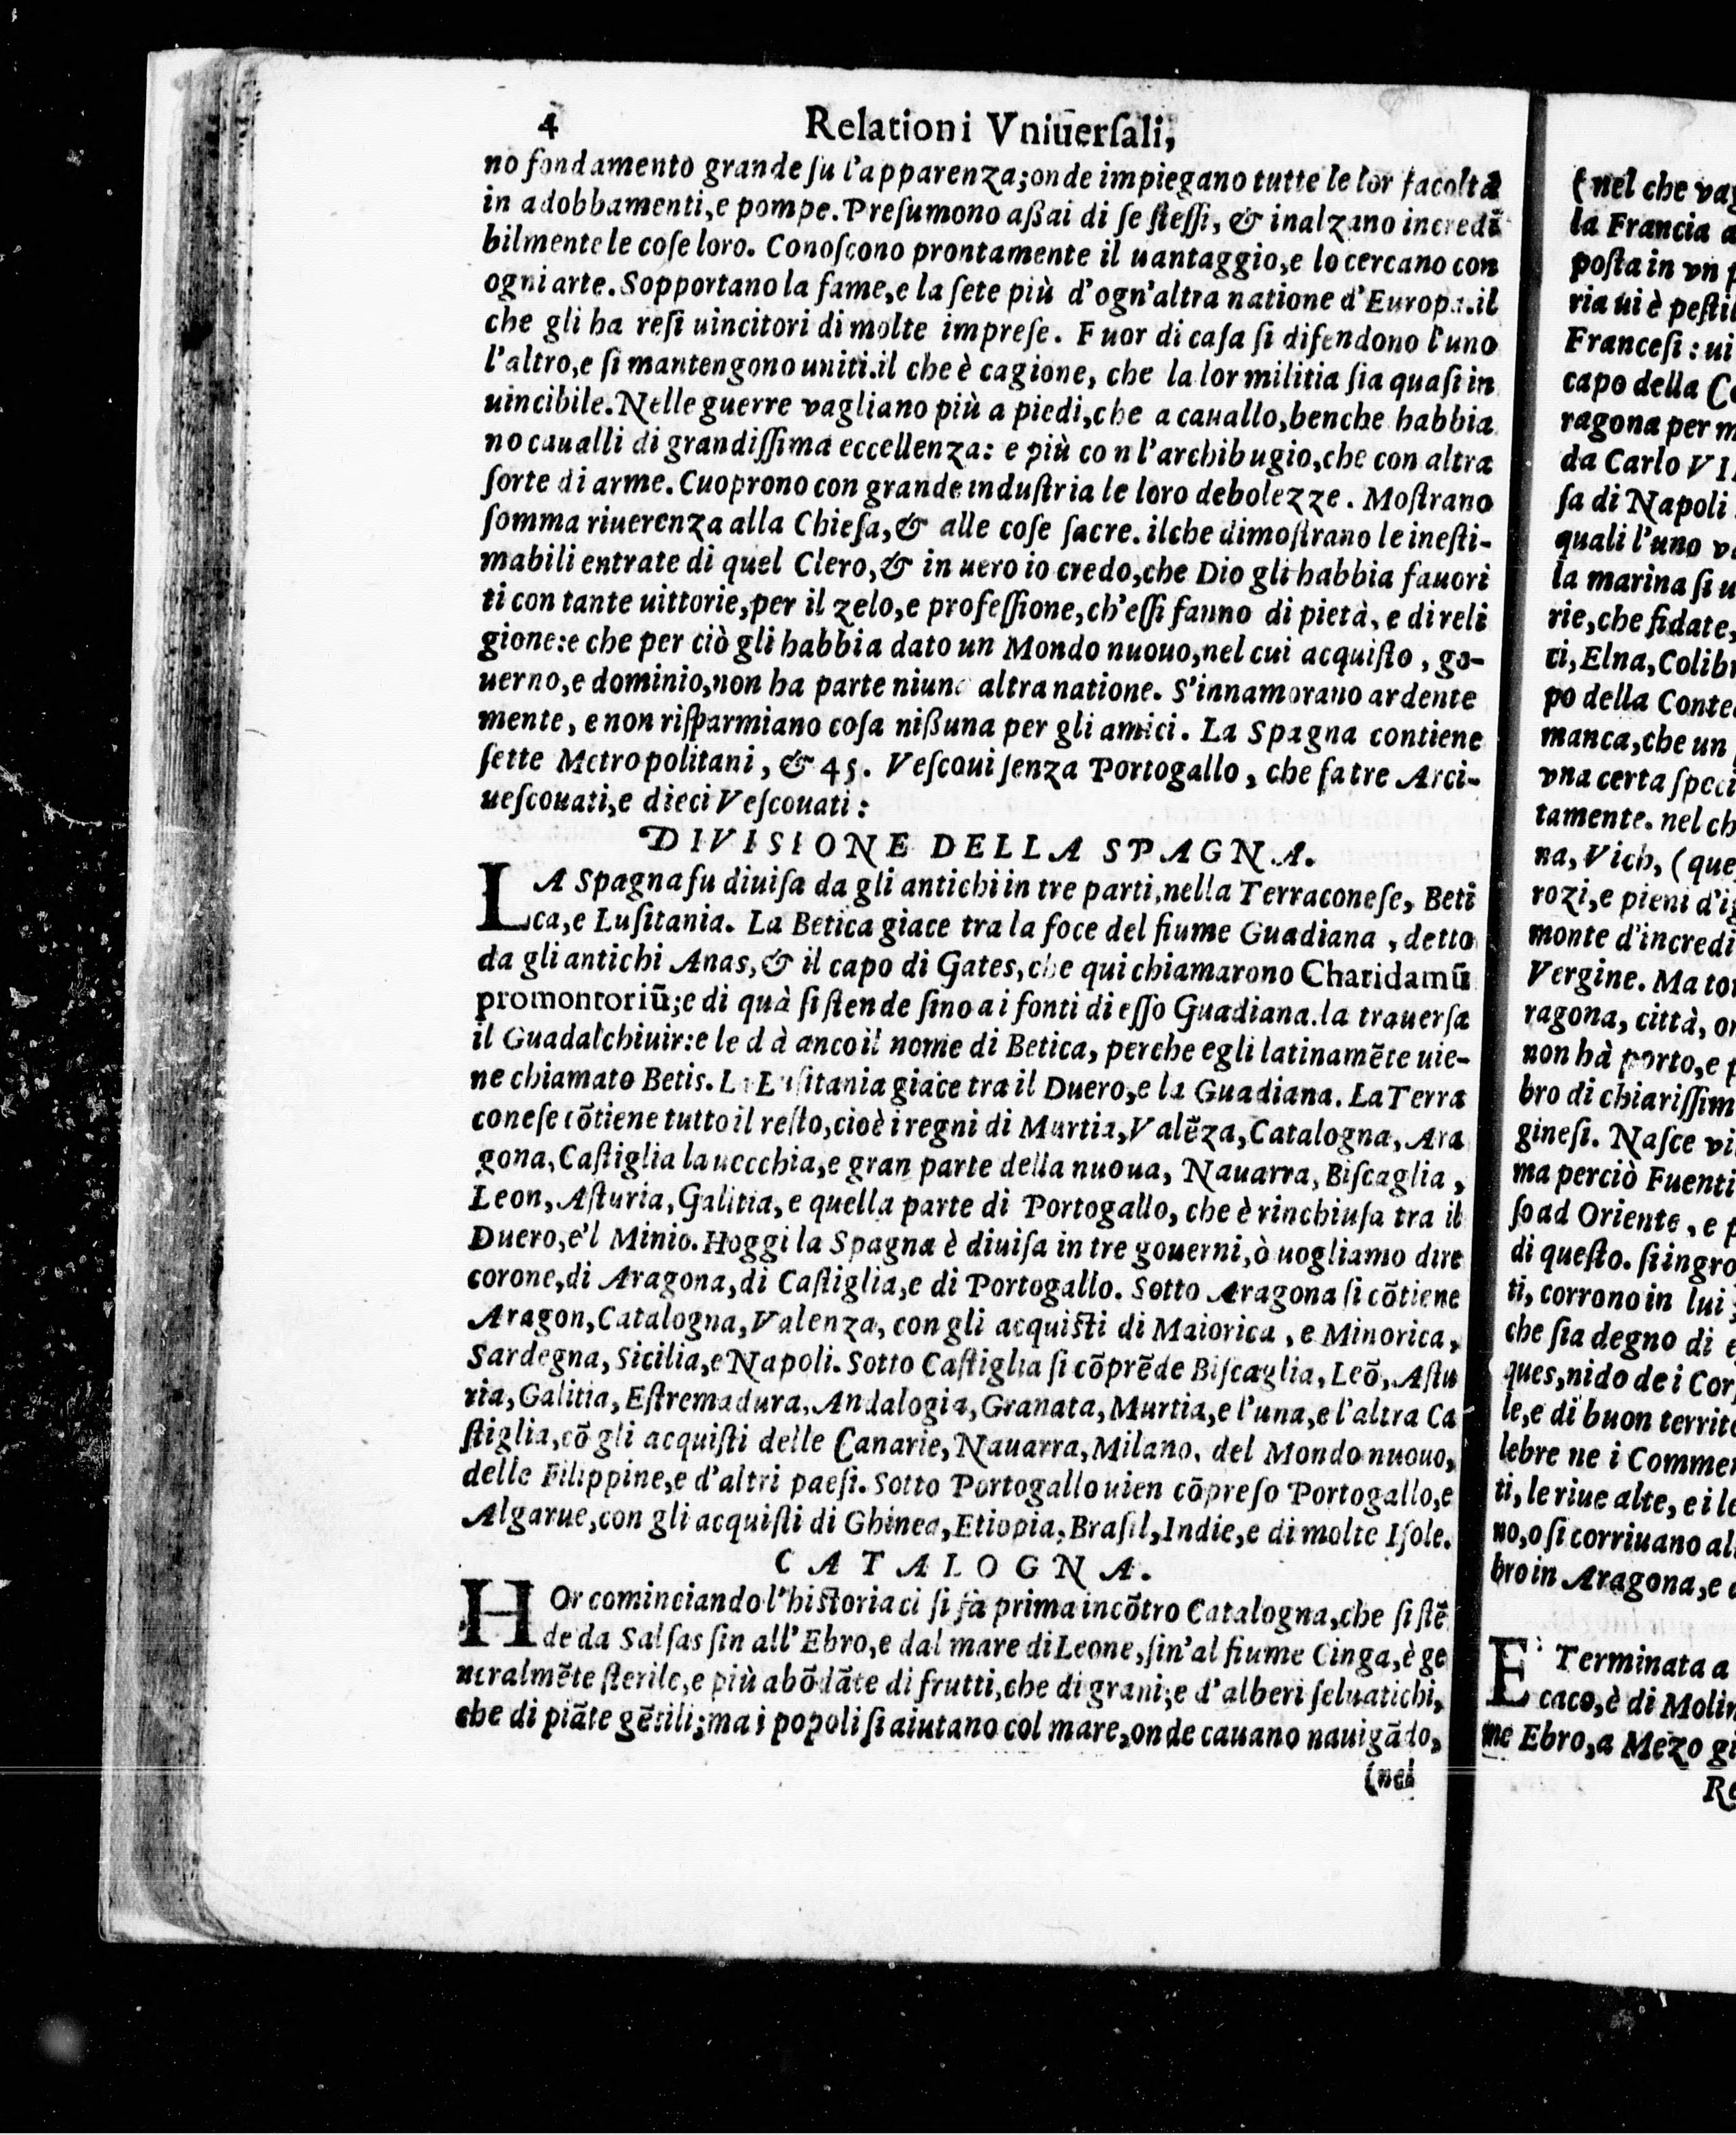 4 Relationi Vniuerſali,
no fondamento grande ſu l'apparenza; onde impiegano tutte le lor facoltà
in adobbamenti, e pompe. Preſumono aßai di ſe ſteſſi, & inalzano incredi
bilmente le coſe loro. Conoſcono prontamente il uantaggio, e lo cercano con
ogni arte. Sopportano la fame, e la ſete più d'ogn'altra natione d'Europa. il
che gli ha reſi uincitori di molte impreſe. Fuor di caſa ſi difendono l'uno
l'altro, e ſi mantengono uniti. il che è cagione, che la lor militia ſia quaſi in
uincibile. Nelle guerre vagliano più a piedi, che a cauallo, benche habbia
no caualli di grandiſſima eccellenza: e più con l'archibugio, che con altra
ſorte di arme. Cuoprono con grande induſtria le loro debolezze. Moſtrano
ſomma riuerenza alla Chieſa, & alle coſe ſacre. ilche dimoſtrano le ineſti-
mabili entrate di quel Clero, & in uero io credo, che Dio gli habbia fauori
ti con tante uittorie, per il zelo, e profeſſione, ch'eſſi fanno di pietà, e di reli
gione: e che per ciò gli habbia dato un Mondo nuouo, nel cui acquiſto, go-
uerno, e dominio, non ha parte niuna altra natione. S'innamorano ardente
mente, e non riſparmiano coſa nißuna per gli amici. La Spagna contiene
ſette Metropolitani, & 45. Veſcoui ſenza Portogallo, che fa tre Arci-
ueſcouati, e dieci Veſcouati:
DIVISIONE DELLA SPAGNA.
LA Spagna fu diuiſa da gli antichi in tre parti, nella Terraconeſe, Beti
ca, e Luſitania. La Betica giace tra la foce del fiume Guadiana, detto
da gli antichi Anas, & il capo di Gates, che qui chiamarono Charidamū
promontoriū; e di quà ſi ſtende ſino a i fonti di eſſo Guadiana. la trauerſa
il Guadalchiuir: e le dà anco il nome di Betica, perche egli latinamẽte uie-
ne chiamato Betis. La Luſitania giace tra il Duero, e la Guadiana. La Terra
coneſe cõtiene tutto il reſto, cioè i regni di Murtia, Valẽza, Catalogna, Ara
gona, Caſtiglia la uecchia, e gran parte della nuoua, Nauarra, Biſcaglia,
Leon, Aſturia, Galitia, e quella parte di Portogallo, che è rinchiuſa tra il
Duero, e'l Minio. Hoggi la Spagna è diuiſa in tre gouerni, ò uogliamo dire
corone, di Aragona, di Caſtiglia, e di Portogallo. Sotto Aragona ſi cõtiene
Aragon, Catalogna, Valenza, con gli acquiſti di Maiorica, e Minorica,
Sardegna, Sicilia, e Napoli. Sotto Caſtiglia ſi cõprẽde Biſcaglia, Leõ, Aſtu
ria, Galitia, Eſtremadura, Andalogia, Granata, Murtia, e l'una, e l'altra Ca
ſtiglia, cõ gli acquiſti delle Canarie, Nauarra, Milano, del Mondo nuouo,
delle Filippine, e d'altri paeſi. Sotto Portogallo uien cõpreſo Portogallo, e
Algarue, con gli acquiſti di Ghinea, Etiopia, Braſil, Indie, e di molte Iſole.
CATALOGNA.
HOr cominciando l'hiſtoria ci ſi fa prima incõtro Catalogna, che ſi ſtẽ
de da Salſas ſin all'Ebro, e dal mare di Leone, ſin'al fiume Cinga, è ge
neralmẽte ſterile, e più abõdãte di frutti, che di grani; e d'alberi ſeluatichi,
che di piãte gẽtili; ma i popoli ſi aiutano col mare, onde cauano nauigãdo,
(nel
(nel che vag
la Francia a
poſta in vn p
ria ui è peſtil
Franceſi: ui
capo della Co
ragona per m
da Carlo VII
ſa di Napoli
quali l'uno va
la marina ſi u
rie, che fidate,
ti, Elna, Colibr
po della Conte
manca, che un
vna certa ſpeci
tamente. nel ch
na, Vich, (que
rozi, e pieni d'i
monte d'incredi
Vergine. Ma to
ragona, città, or
non hà porto, e p
bro di chiariſſim
gineſi. Naſce vi
ma perciò Fuenti
ſo ad Oriente, e p
di queſto. ſi ingro
ti, corrono in lui
che ſia degno di e
ques, nido de i Cor
le, e di buon territo
lebre ne i Commen
ti, le riue alte, e i le
no, o ſi corriuano al
bro in Aragona, e
E' Terminata a
caco, è di Molin
me Ebro, a Mezo gi
Re